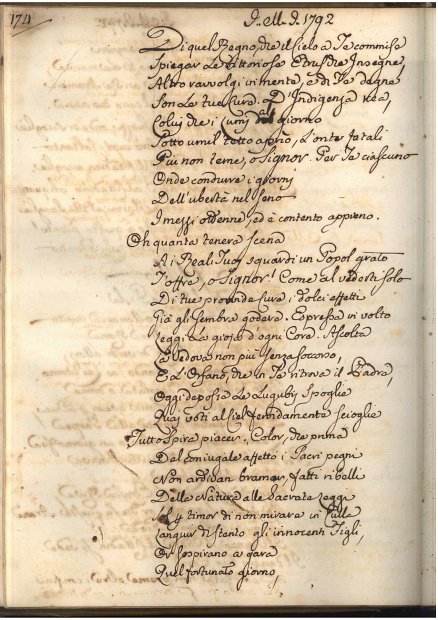 174
G. M. G. 1792
Di quel Regno, che il Cielo a Te commise
Spiegar Le Vittoriose Etrusche Insegne,
Altro ravvolgi in mente, e di Te degne
Son La tue Cura. D'Indigenza rea,
Colui che i lumi al giorno
Sotto umil tetto aprìo, L'onte fatali
Più non teme, o Signor. Per Te ciascuno
Onde condurre i giorni
Dell'ubertà nel seno
I mezzi ottenne, ed è contento appieno.
Oh quanta tenera scena
Ai Reali Tuoi sguardi un Popol grato
T'offre, o Signor! Come al vederti solo
Di tue provide cure i dolci effetti
Già gli sembra goder. Espressa in volto
Leggi La gioja d'ogni Cord. Ascolta
La Vedova non più senza soccorso,
E L'Orfano, che in Te ritrova il Padre,
Oggi deposte Le Lugubri Spoglie
Quai voti al Ciel fervidamente scioglie
Tutto spira piacer. Color, che prima
Del coniugale affetto i Sacri pegni
Non ardivan bramar, fatti ribelli
Della Natura alle Sacrate Leggi
Sol timor di non mirare in Culla
Languir di stento gli innocenti Figli,
Or sospirano a gara
Quel fortunato giorno,